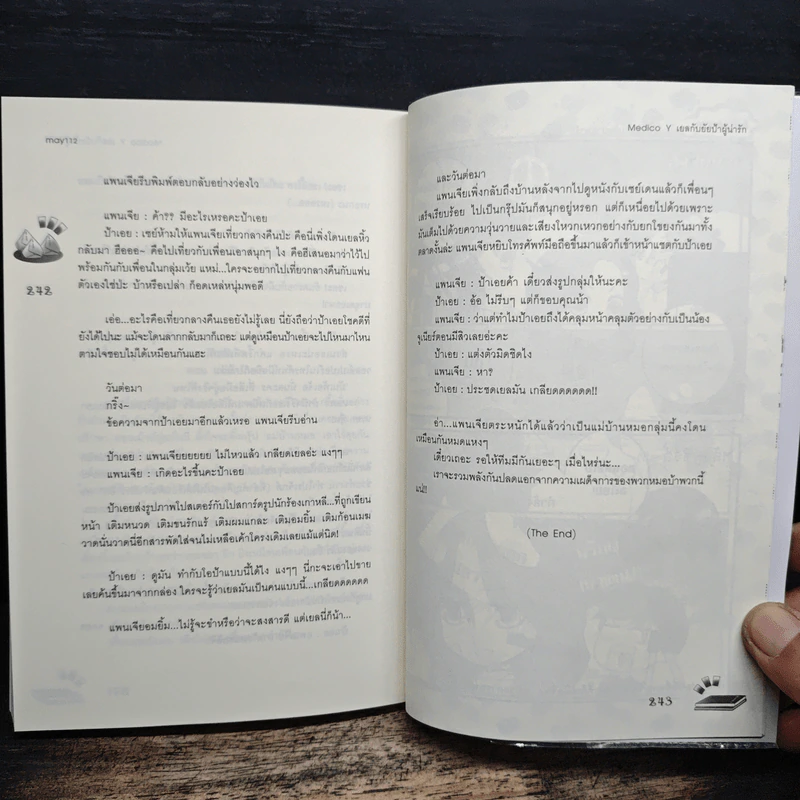 may112
แพนเจียรีบพิมพ์ตอบกลับอย่างว่องไว
แพนเจีย : ค้า?? มีอะไรเหรอคะป้าเอย
ป้าเอย : เซย์ห้ามให้แพนเจียเที่ยวกลางคืนป่ะ คือนี่เพิ่งโดนเยลหิ้ว
กลับมา ฮือออ~ คือไปเที่ยวกับเพื่อนเอาสนุกๆ ไง คือฮีเสนอมาว่าไว้ไป
พร้อมกันกับเพื่อนในกลุ่มเว้ย แหม่...ใครจะอยากไปเที่ยวกลางคืนกับแฟน
ตัวเองใช่ปะ บ้าหรือเปล่า ก็อดเหล่หนุ่มพอดี
272
เอ่อ...อะไรคือเที่ยวกลางคืนเธอยังไม่รู้เลย นี่ยังถือว่าป้าเอยโชคดีที่
ยังได้ไปนะ แม้จะโดนลากกลับมาก็เถอะ แต่ดูเหมือนป้าเอยจะไปไหนมาไหน
ตามใจชอบไม่ได้เหมือนกันแฮะ
วันต่อมา
กริ๊ง~
ข้อความจากป้าเอยมาอีกแล้วเหรอ แพนเจียรีบอ่าน
ป้าเอย : แพนเจียยยยยย ไม่ไหวแล้ว เกลียดเยลอ่ะ แงๆๆ
แพนเจีย : เกิดอะไรขึ้นคะป้าเอย
ป้าเอยส่งรูปภาพโปสเตอร์กับโปสการ์ดรูปนักร้องเกาหลี...ที่ถูกเขียน
หน้า เติมหนวด เติมขนรักแร้ เติมผมแกละ เติมอมยิ้ม เติมก้อนเมฆ
วาดนั่นวาดนี่อีกสารพัดใส่จนไม่เหลือเค้าโครงเดิมเลยแม้แต่นิด!
ป้าเอย : ดูมัน ทำกับโอป้าแบบนี้ได้ไง แงๆๆ นี่กะจะเอาไปขาย
เลยค้นขึ้นมาจากกล่อง ใครจะรู้ว่าเยลมันเป็นคนแบบนี้...เกลียดดดดดด
แพนเจียอมยิ้ม...ไม่รู้จะขำหรือว่าจะสงสารดี แต่เยลนี่ก็น้า...
Medico Y เยลกับยัยป้าผู้น่ารัก
และวันต่อมา
แพนเจียเพิ่งกลับถึงบ้านหลังจากไปดูหนังกับเซย์เดนแล้วก็เพื่อนๆ
เสร็จเรียบร้อย ไปเป็นกรุ๊ปมันก็สนุกอยู่หรอก แต่ก็เหนื่อยไปด้วยเพราะ
มันเต็มไปด้วยความวุ่นวายและเสียงโหวกเหวกอย่างกับยกโขยงกันมาทั้ง
ตลาดงั้นล่ะ แพนเจียหยิบโทรศัพท์มือถือขึ้นมาแล้วก็เข้าหน้าแชตกับป้าเอย
แพนเจีย : ป้าเอยค้า เดี๋ยวส่งรูปกลุ่มให้นะคะ
ป้าเอย : อ้อ ไม่รีบๆ แต่ก็ขอบคุณน้า
แพนเจีย : ว่าแต่ทำไมป้าเอยถึงได้คลุมหน้าคลุมตัวอย่างกับเป็นน้อง
จูเนียร์ตอนมีสิวเลยอ่ะคะ
ป้าเอย : แต่งตัวมิดชิดไง
แพนเจีย : หา?
ป้าเอย : ประชดเยลมัน เกลียดดดดดด!!
อ่า...แพนเจียตระหนักได้แล้วว่าเป็นแม่บ้านหมอกลุ่มนี้คงโดน
เหมือนกันหมดแหงๆ
เดี๋ยวเถอะ รอให้ทีมมีกันเยอะๆ เมื่อไหร่นะ...
เราจะรวมพลังกันปลดแอกจากความเผด็จการของพวกหมอบ้าพวกนี้
แน่!!
(The End)
273